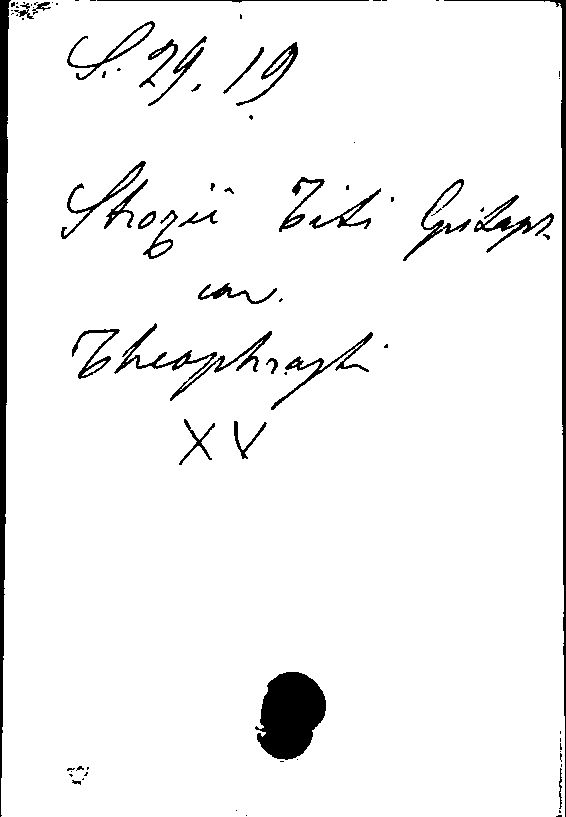 S. 29, 19
Strozii Titi Epitaph.
car.
Theophrasti
XV